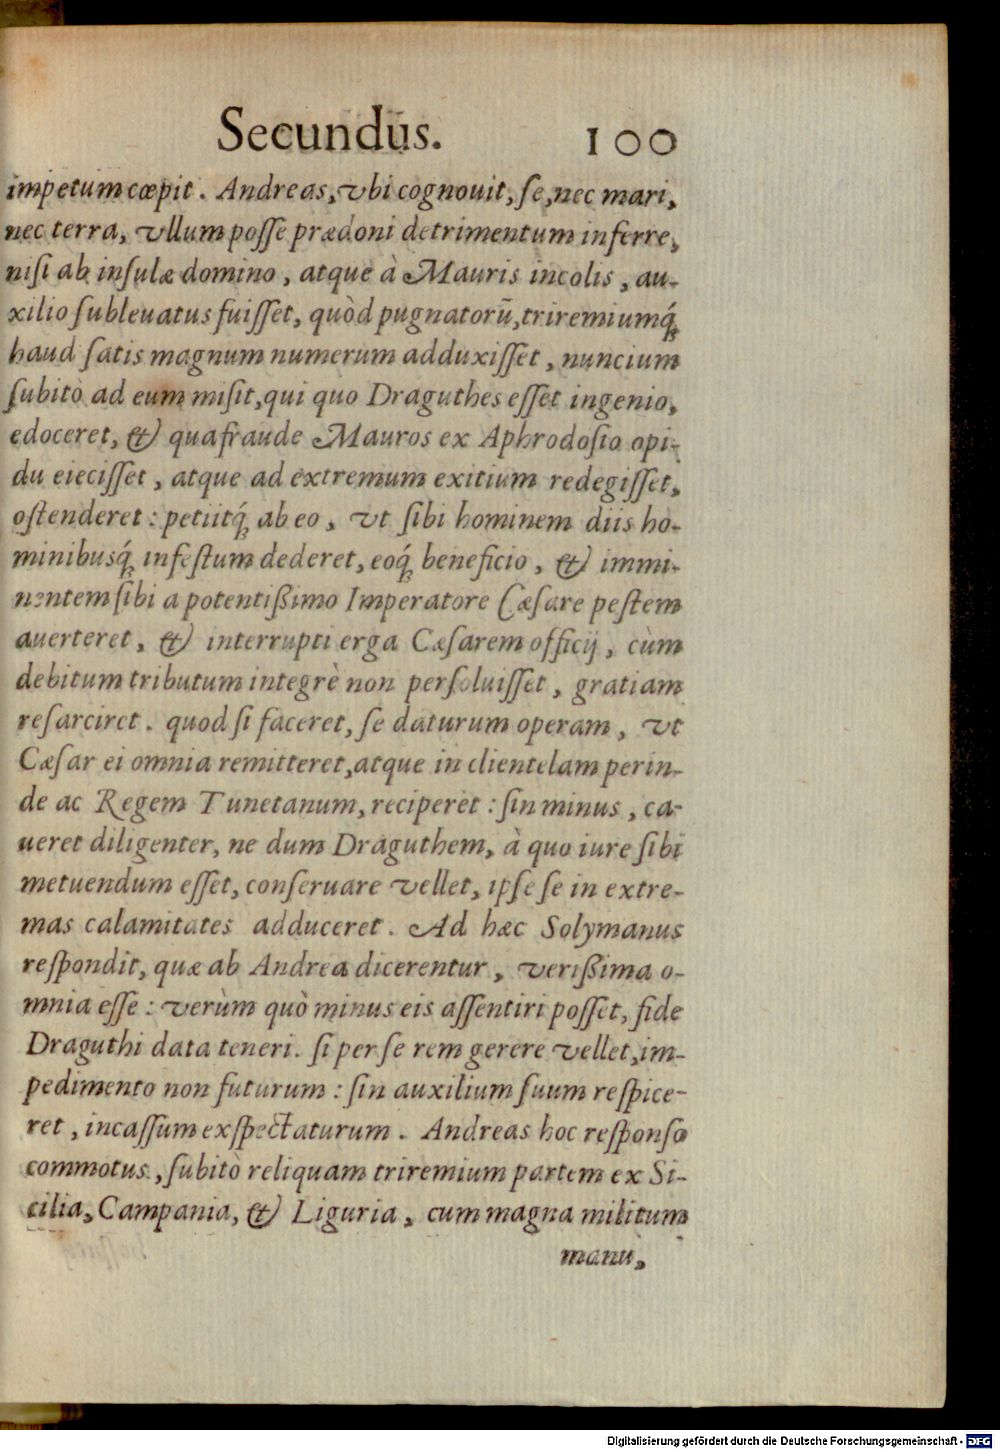 Secundus. 100
impetum cœpit. Andreas, vbi cognouit, se, nec mari,
nec terra, vllum posse prædoni detrimentum inferre,
nisi ab insulæ domino, atque à Mauris incolis, au-
xilio subleuatus fuisset, quòd pugnatorū, triremiumq́;
haud satis magnum numerum adduxisset, nuncium
subitò ad eum misit, qui quo Draguthes esset ingenio,
edoceret, & qua fraude Mauros ex Aphrodosio opi-
du eiecisset, atque ad extremum exitium redegisset,
ostenderet: petiitq́; ab eo, vt sibi hominem diis ho-
minibusq́; infestum dederet, eoq́; beneficio, & immi-
nentem sibi a potentißimo Imperatore Cæsare pestem
auerteret, & interrupti erga Cæsarem officij, cùm
debitum tributum integrè non persoluisset, gratiam
resarciret. quod si faceret, se daturum operam, vt
Cæsar ei omnia remitteret, atque in clientelam perin-
de ac Regem Tunetanum, reciperet: sin minus, ca-
ueret diligenter, ne dum Draguthem, à quo iure sibi
metuendum esset, conseruare vellet, ipse se in extre-
mas calamitates adduceret. Ad hæc Solymanus
respondit, quæ ab Andrea dicerentur, verißima o-
mnia esse: verùm quò minus eis assentiri posset, fide
Draguthi data teneri. si per se rem gerere vellet, im-
pedimento non futurum: sin auxilium suum respice-
ret, incassum exspectaturum. Andreas hoc responso
commotus, subitò reliquam triremium partem ex Si-
cilia, Campania, & Liguria, cum magna militum
manu,
Digitalisierung gefördert durch die Deutsche Forschungsgemeinschaft - DFG